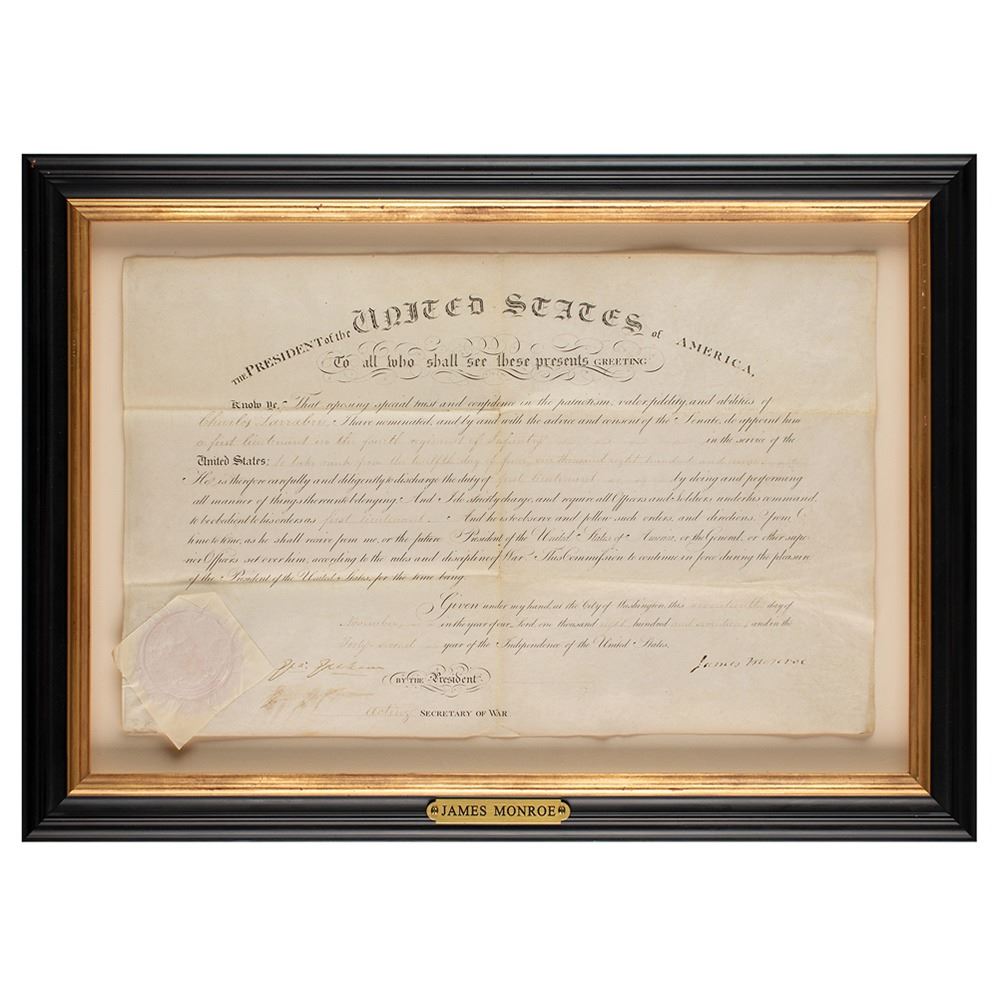 THE PRESIDENT of the UNITED STATES of AMERICA,
To all who shall see these presents GREETING
Know Ye, That reposing special trust and confidence in the patriotism, valor, fidelity, and abilities of
Charles Larrabee I have nominated, and by and with the advice and consent of the Senate, do appoint him
a first lieutenant in the fourth regiment of Infantry in the service of the
United States; to take rank from the twelfth day of one thousand eight hundred and
He is therefore carefully and diligently to discharge the duty of first lieutenant by doing and performing
all manner of things thereunto belonging. And I do strictly charge, and require all Officers and Soldiers under his command,
to be obedient to his orders as first lieutenant. And he is to observe and follow such orders, and directions, from
time to time, as he shall receive from me, or the future President of the United States of America, or the General, or other supe-
rior Officers set over him, according to the rules and discipline of War. This Commission to continue in force during the pleasure
of the President of the United States, for the time being.
Given under my hand, at the City of Washington, this day of
November in the year of our Lord, one thousand eight hundred and and in the
Forty second year of the Independence of the United States.
James Monroe
BY THE President
acting SECRETARY OF WAR
JAMES MONROE